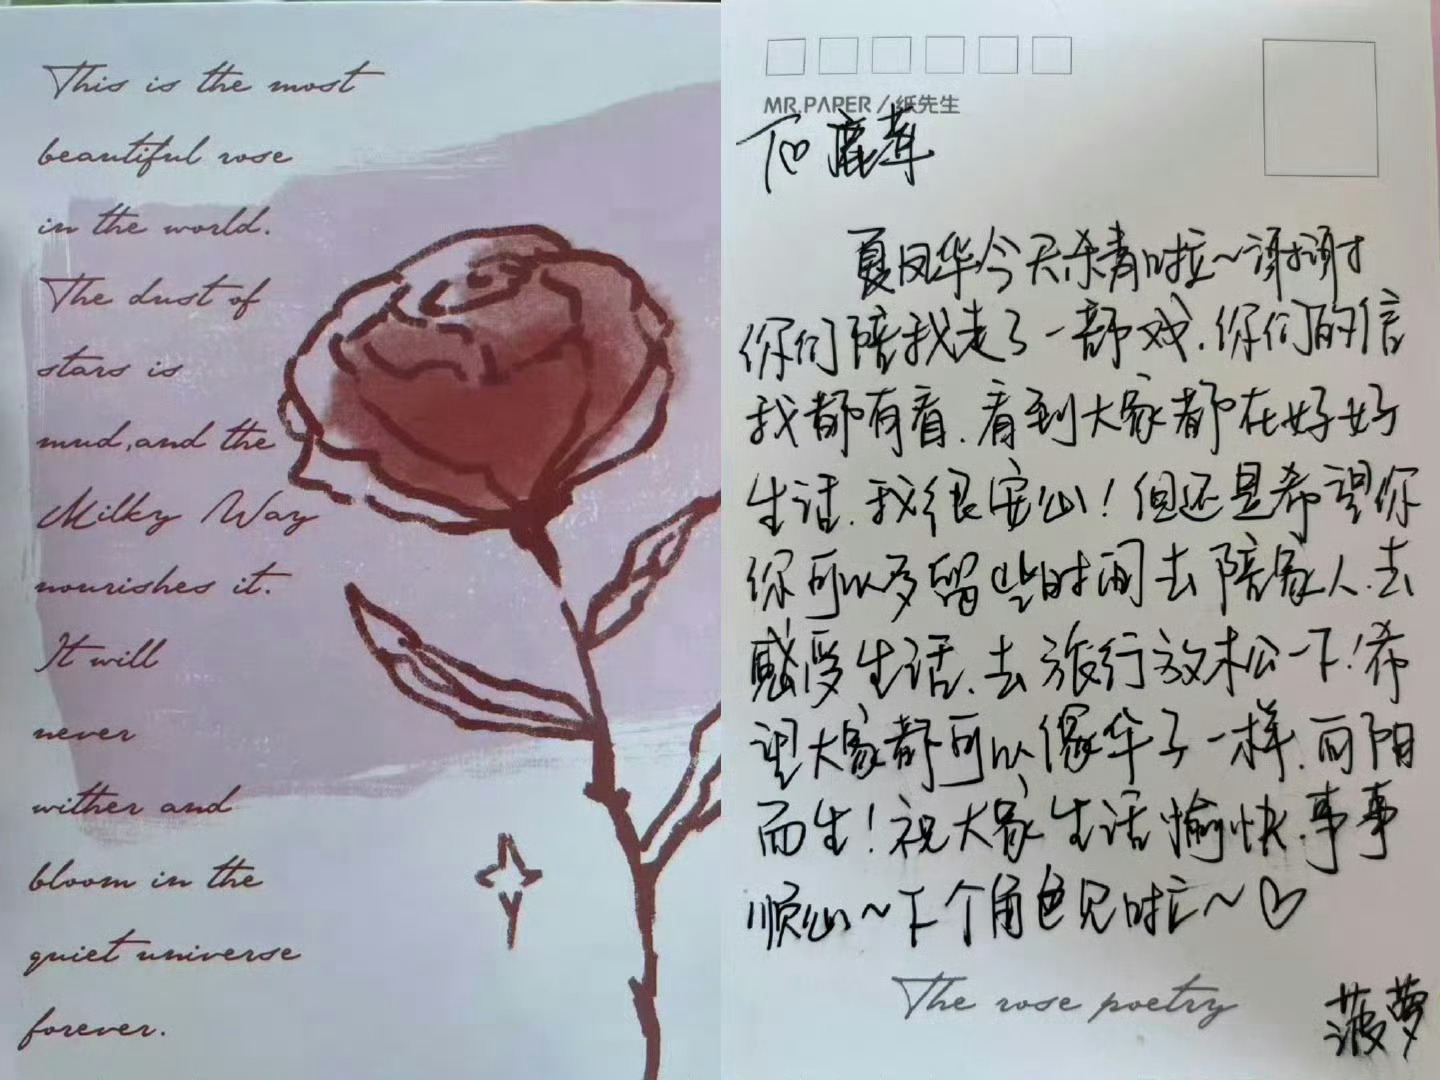 This is the most
beautiful rose
in the world.
The dust of
stars is
mud, and the
Milky Way
nourishes it.
It will
never
wither and
bloom in the
quiet universe
forever.
MR.PAPER/纸先生
To 鹿
夏凤华今天杀青啦~谢谢
你们陪我走了一部戏.你们的信
我都有看.看到大家都在好好
生活.我很安心!但还是希望你
你可以多留些时间去陪家人.去
感受生活.去旅行放松一下!希
望大家都可以像华子一样.向阳
而生!祝大家生活愉快.事事
顺心~下个角色见时~♡
The rose poetry
菠萝